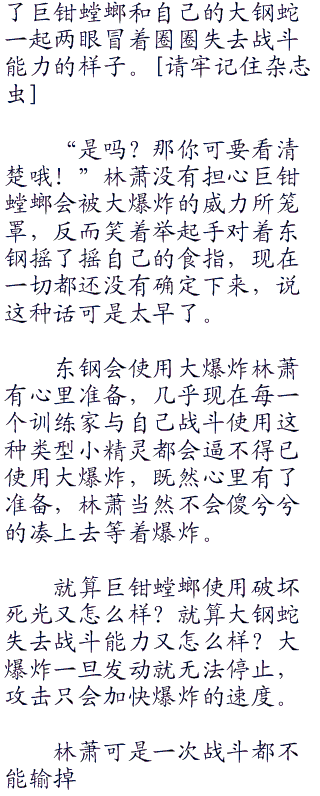 了巨钳螳螂和自己的大钢蛇
一起两眼冒着圈圈失去战斗
能力的样子。[请牢记住杂志
虫]
“是吗？那你可要看清
楚哦！”林萧没有担心巨钳
螳螂会被大爆炸的威力所笼
罩，反而笑着举起手对着东
钢摇了摇自己的食指，现在
一切都还没有确定下来，说
这种话可是太早了。
东钢会使用大爆炸林萧
有心里准备，几乎现在每一
个训练家与自己战斗使用这
种类型小精灵都会逼不得已
使用大爆炸，既然心里有了
准备，林萧当然不会傻兮兮
的凑上去等着爆炸。
就算巨钳螳螂使用破坏
死光又怎么样？就算大钢蛇
失去战斗能力又怎么样？大
爆炸一旦发动就无法停止，
攻击只会加快爆炸的速度。
林萧可是一次战斗都不
能输掉